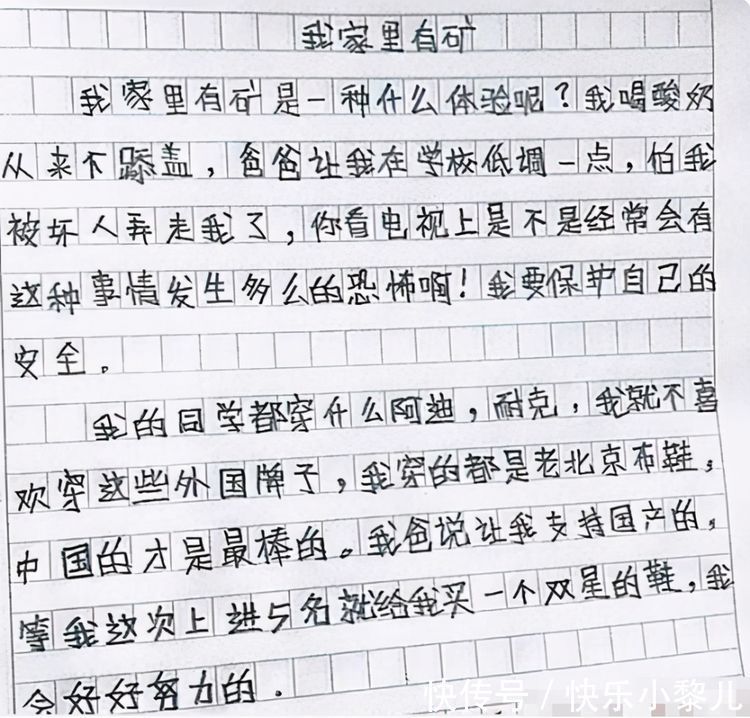 我家里有矿
我家里有矿是一种什么体验呢？我喝酸奶
从来不舔盖，爸爸让我在学校低调一点，怕我
被坏人弄走我了，你看电视上是不是经常会有
这种事情发生多么的恐怖啊！我要保护自己的
安全。
我的同学都穿什么阿迪，耐克，我就不喜
欢穿这些外国牌子，我穿的都是老北京布鞋，
中国的才是最棒的。我爸说让我支持国产的，
等我这次上进5名就给我买一个双星的鞋，我
会好好努力的．
快传号／快乐小黎儿